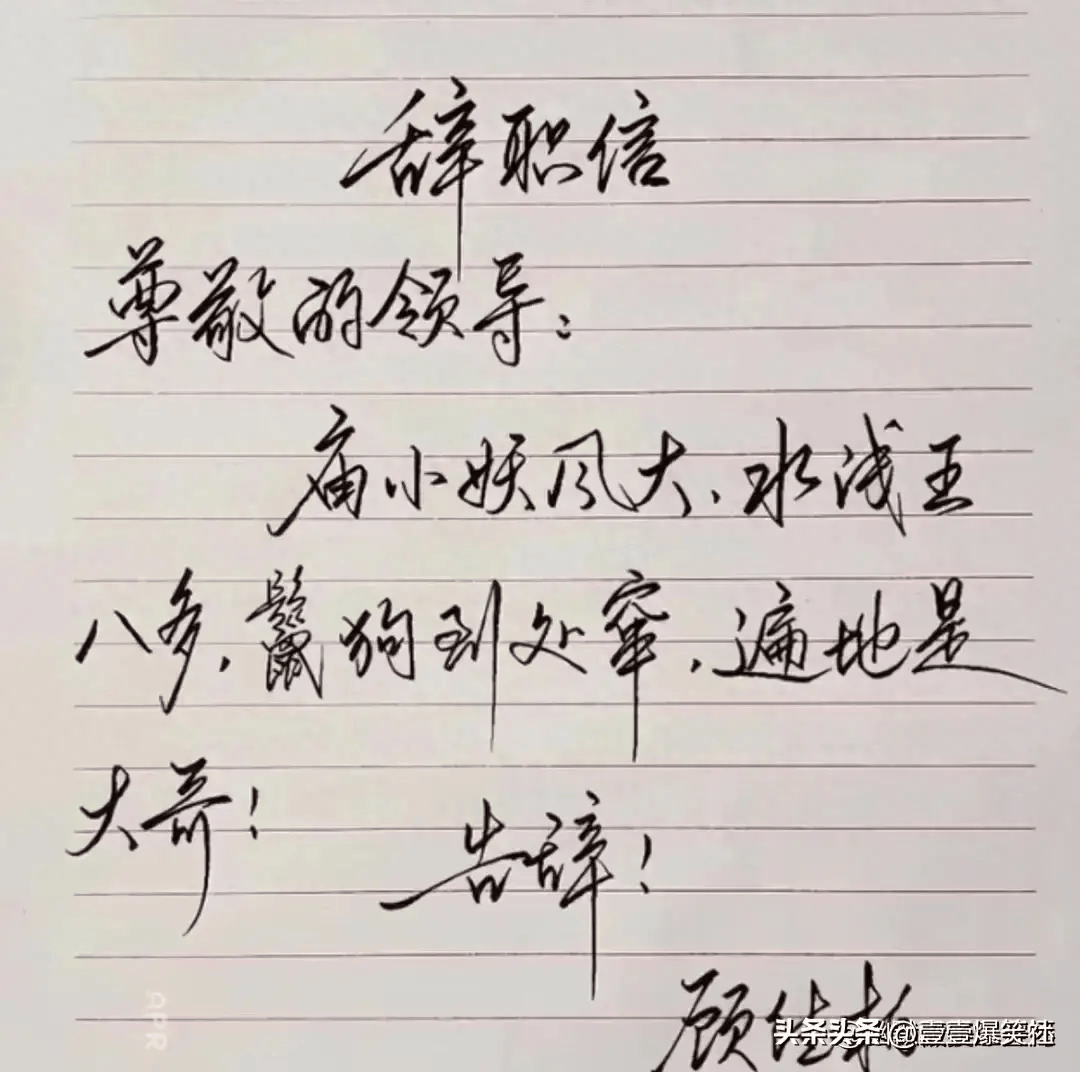 辞职信
尊敬的领导：
庙小妖风大、水浅王
八多，鬣狗到处窜，遍地是
大哥！
告辞！
顾佳
APR
头条 @壹壹爆笑妹